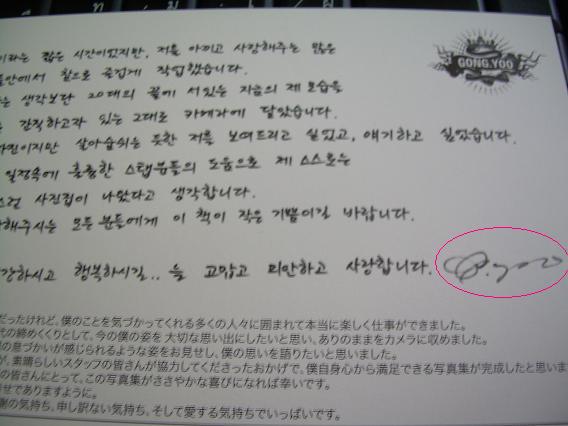 GONG.YOO
이라는 짧은 시간이었지만, 저를 아끼고 사랑해주는 많은
들안에서 참으로 즐겁게 작업했습니다.
는 생각보단 20대의 끝에 서있는 지금의 제 모습을
간직하고자 있는 그대로 카메라에 담았습니다.
이지만 살아숨쉬는 듯한 저를 보여드리고 싶었고, 얘기하고 싶었습니다.
일정속에 훌륭한 스탭분들의 도움으로 제 스스로는
사진집이 나왔다고 생각합니다.
해주시는 모든 분들에게 이 책이 작은 기쁨이길 바랍니다.
강하시고 행복하시길.. 늘 고맙고 미안하고 사랑합니다.
だったけれど、僕のことを気づかってくれる多くの人々に囲まれて本当に楽しく仕事ができました。
代の締めくくりとして、今の僕の姿を大切な思い出にしたいと思い、ありのままをカメラに収めました。
の息づかいが感じられるような姿をお見せし、僕の思いを語りたいと思いました。
が、素晴らしいスタッフの皆さんが協力してくださったおかげで、僕自身心から満足できる写真集が完成したと思いま
の皆さんにとって、この写真集がささやかな喜びになれば幸いです。
せでありますように。
謝の気持ち、申し訳ない気持ち、そして愛する気持ちでいっぱいです。